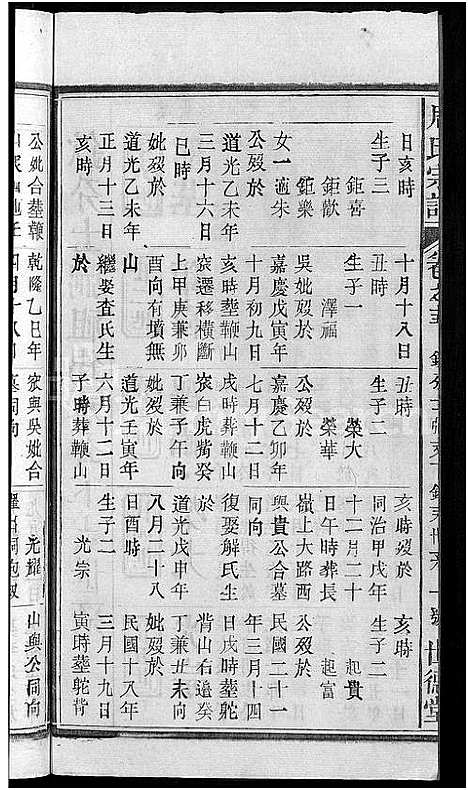 周氏宗譜
卷之五
世德堂
日亥時
生子三
鉅喜
鉅歡
鉅樂
女一適朱
公歿於
道光乙未年
三月十六日
巳時
妣歿於
道光乙未年
正月十三日
亥時
十月十八日
丑時
生子一
澤福
吳妣歿於
嘉慶戊寅年
十月初九日
亥時葬鞭山
窊遷移橫斷
上甲庚兼卯
酉向有墳無
山
繼娶査氏生
於
丑時
生子二
榮大
榮華
公歿於
嘉慶乙卯年
七月十二日
戌時葬鞭山
窊白虎嘴癸
丁兼子午向
妣歿於
道光壬寅年
六月十二日
子時葬鞭山
亥時歿於
同治甲戌年
十二月二十
日午時葬長
嶺上大路西
與貴公合墓
同向
復娶解氏生
於
道光戊申年
八月二十八
日酉時
生子二
光宗
亥時
生子二
起貴
起富
公歿於
民國二十一
年三月十四
日戌時塟駝
背山右邊癸
丁兼丑未向
妣歿於
民國十八年
三月十九日
寅時塟駝背
公妣合塟鞭
乾隆乙巳年
窊與吳妣合
光耀
山與公同向